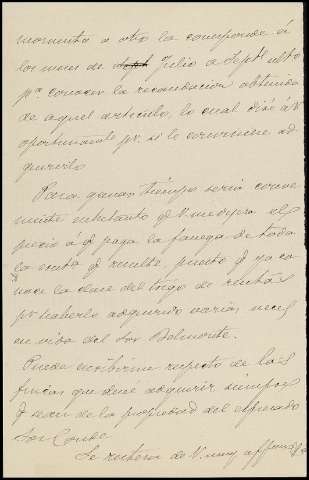 momento a otro la corresponde á
los meses de Julio a Sept. ulto
pa. conocer la recaudacion obtenida
de aquel articulo, lo cual diré á V.
oportunamte pr. si le conviniere ad-
quirirlo.
Para ganar tiempo seria conve
niente entretanto q. V. me dijera el
precio á q. paga la fanega de toda
la renta q. resulte, puesto q. ya co
noce la clase del trigo de rentas
pr. haberlo adquirido varias veces
en vida del Sor. Belmonte.
Puede escribirme respecto de las
fincas que desee adquirir siempre
q. sean de la propiedad del espresado
Sor. Conde
Se reitera de V. muy affmo.